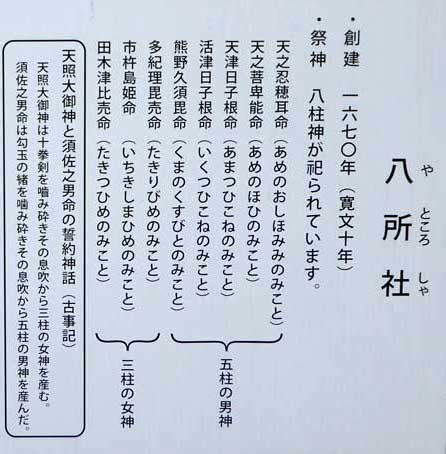 八所社
や ところ しゃ
・創建 一六七〇年（寛文十年）
・祭神 八柱神が祀られています。
天之忍穂耳命（あめのおしほみみのみこと）
天之菩卑能命（あめのほひのみこと）
天津日子根命（あまつひこねのみこと）
活津日子根命（いくつひこねのみこと）
熊野久須毘命（くまのくすびとのみこと）
五柱の男神
多紀理毘売命（たきりびめのみこと）
市杵島姫命（いちきしまひめのみこと）
田木津比売命（たきつひめのみこと）
三柱の女神
天照大御神と須佐之男命の誓約神話（古事記）
天照大御神は十拳剣を嚙み砕きその息吹から三柱の女神を産む。
須佐之男命は勾玉の緒を噛み砕きその息吹から五柱の男神を産んだ。